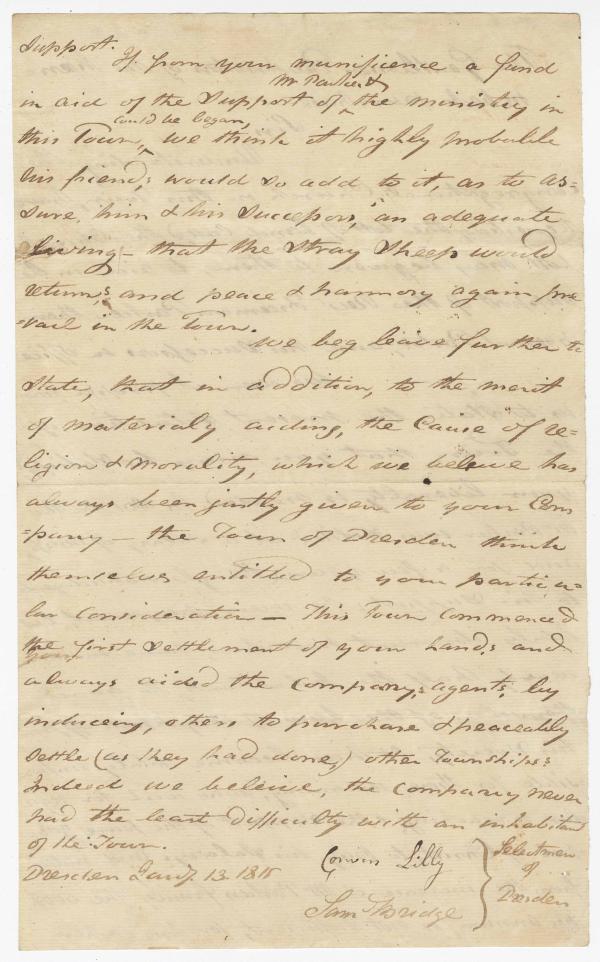 Support.
If from your munificence a fund
in aid of the Support of ^ Mr Parker & the ministry in
this Town, ^ could be began, we think it highly probable
his friends, would so add to it, as to as=
sure, him & his Successors, an adequate
Living - that the Stray Sheep would
return, and peace & harmony again pre
=vail in the Town.
We beg leave further to
State, that in addition, to the merit
of materialy aiding, the Cause of re=
ligion & Morality, which we beleive has
always been justly given to your Com
=pany - the Town of Dresden think
themselves entitled to your particu=
lar Consideration - This Town commenced
the first Settlement of your lands and
always aided the Companys, agents, by
induceing, others to purchase & peaceably
Settle (as they had done,) other Townships:
Indeed we beleive, the Company never
had the least difficulty with an inhabitant
of the Town.
Dresden Jany. 13. 1815
Lilly
Saml Bridge
Selectmen
of
Dresden